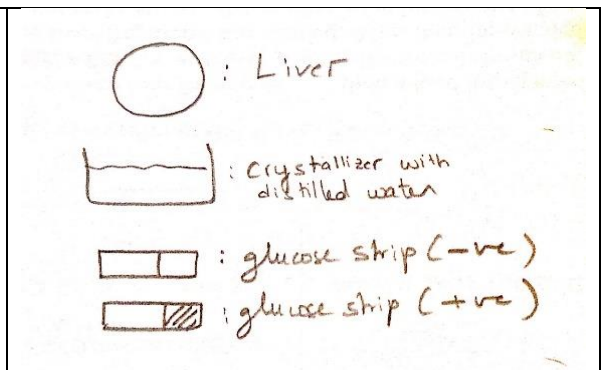 : Liver
: Crystallizer with
distilled water
: glucose strip (-ve)
: glucose strip (+ve)